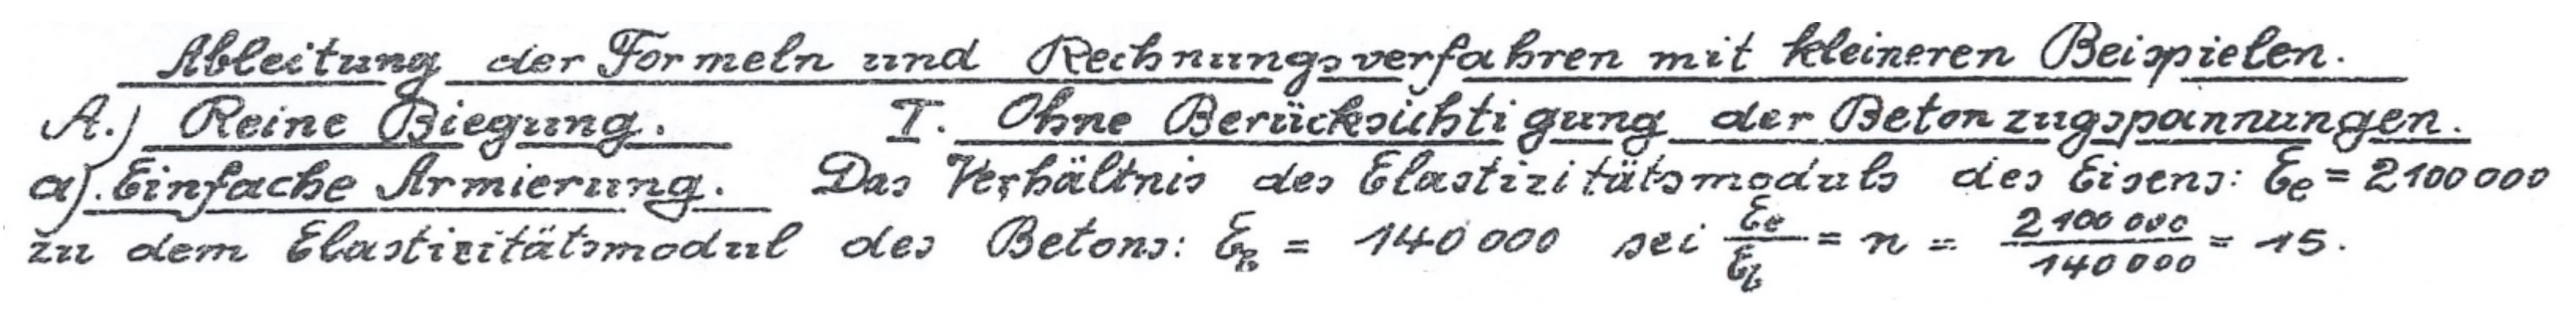 Ableitung der Formeln und Rechnungsverfahren mit kleineren Beispielen.
A.) Reine Biegung. I. Ohne Berücksichtigung der Betonzugspannungen.
a). Einfache Armierung. Das Verhältnis des Elastizitätsmoduls des Eisens: Ee = 2100000
zu dem Elastizitätsmodul des Betons: EB = 140000 sei Ee/Eb = n = 2100000/140000 = 15.